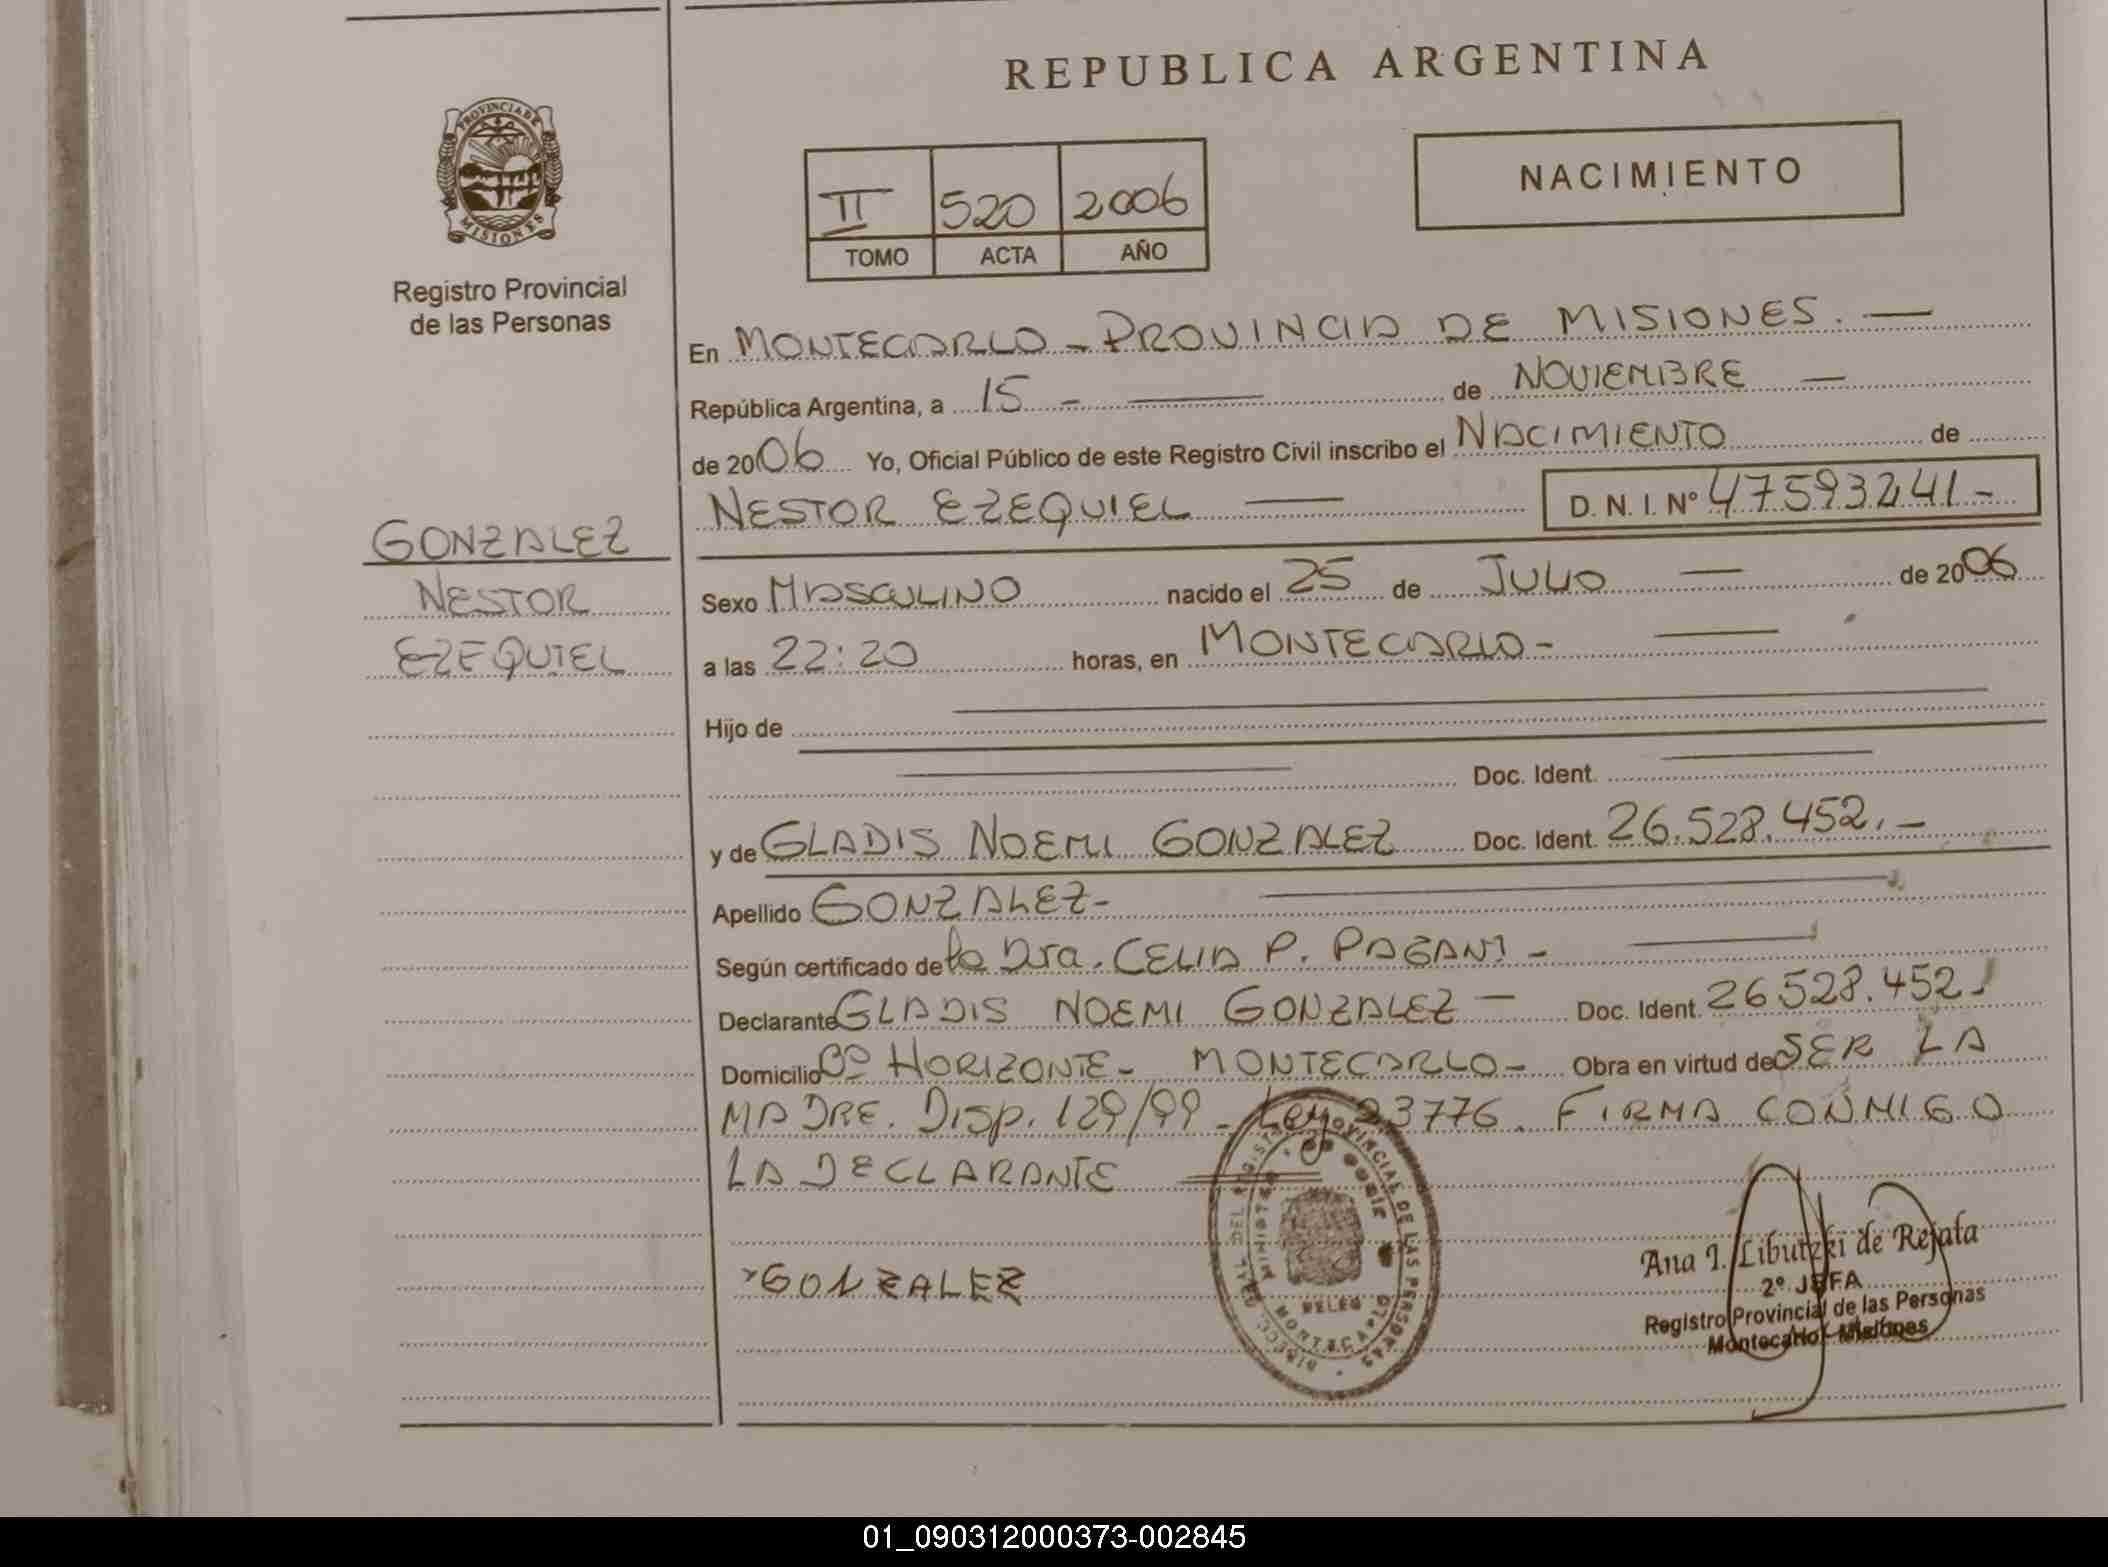 REPUBLICA ARGENTINA
PROVINCIA DE
MISIONES
Registro Provincial
de las Personas
II 520 2006
TOMO ACTA AÑO
NACIMIENTO
En MONTECARLO - PROVINCIA DE MISIONES. —
República Argentina, a 15 - — de NOVIEMBRE —
de 2006 Yo, Oficial Público de este Registro Civil inscribo el NACIMIENTO de
NESTOR EZEQUIEL — D. N. I. Nº 47593241-
GONZALEZ
NESTOR
EZEQUIEL
Sexo MASCULINO nacido el 25 de JULIO — de 2006
a las 22:20 horas, en MONTECARLO - —
Hijo de —
— Doc. Ident. —
y de GLADIS NOEMI GONZALEZ Doc. Ident. 26.528.452.-
Apellido GONZALEZ- —
Según certificado de la Dra. CELIA P. PAGANI - —
Declarante GLADIS NOEMI GONZALEZ — Doc. Ident. 26528.452.
Domicilio Bº HORIZONTE - MONTECARLO - Obra en virtud de SER LA
MADRE. Disp. 129/99 - Ley 23776. FIRMA CONMIGO
LA DECLARANTE
GONZALEZ
REGISTRO PROVINCIAL DE LAS PERSONAS
MONTECARLO
Ana I. Libutzki de Rejala
2º JEFA
Registro Provincial de las Personas
Montecarlo - Misiones
01_090312000373-002845